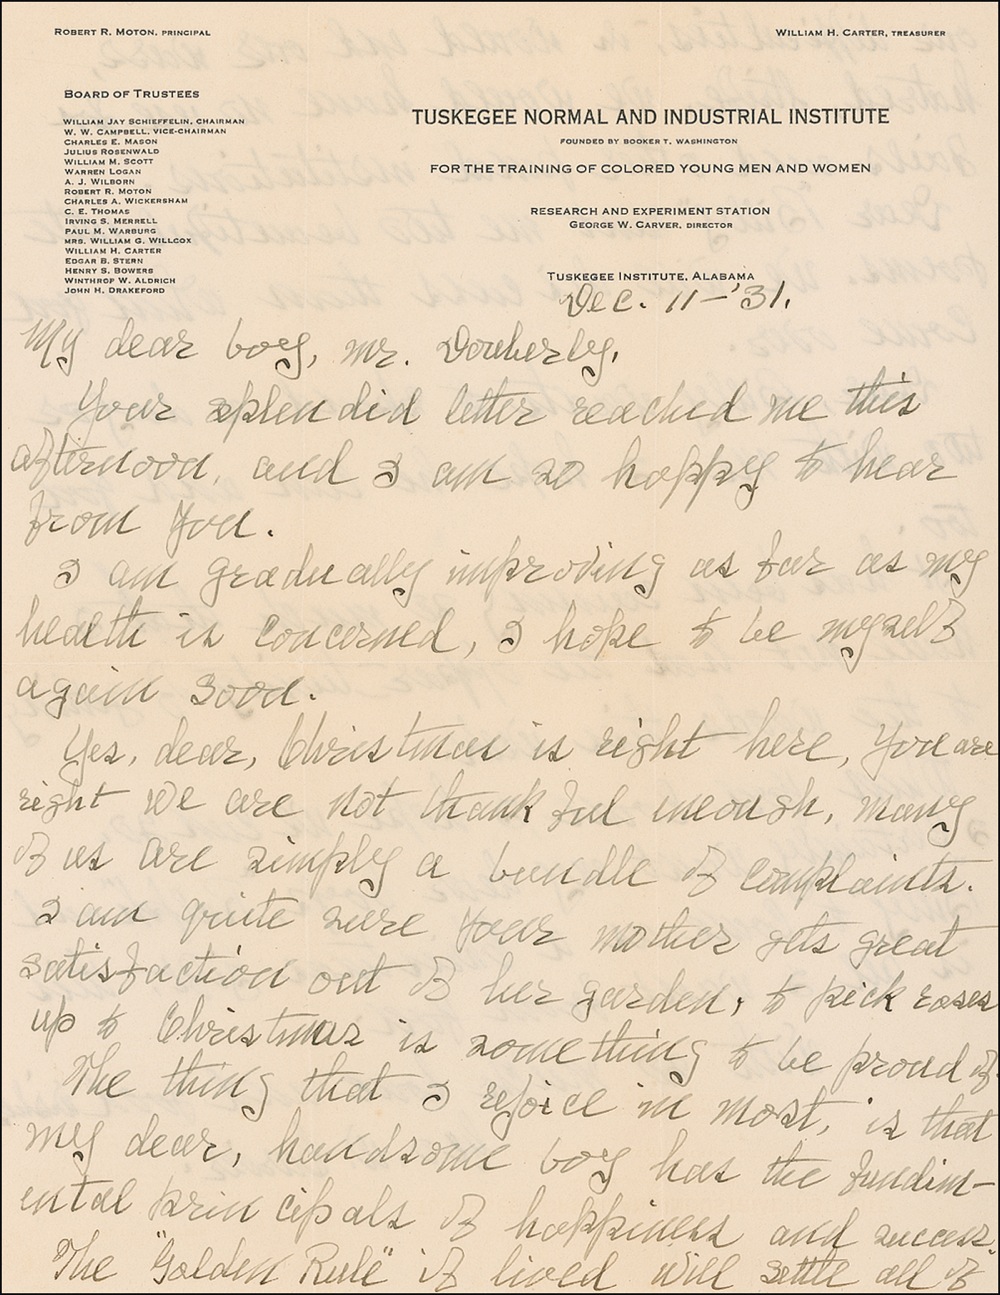 ROBERT R. MOTON, PRINCIPAL
WILLIAM H. CARTER, TREASURER
BOARD OF TRUSTEES
WILLIAM JAY SCHIEFFELIN, CHAIRMAN
W. W. CAMPBELL, VICE-CHAIRMAN
CHARLES E. MASON
JULIUS ROSENWALD
WILLIAM M. SCOTT
WARREN LOGAN
A. J. WILBORN
ROBERT R. MOTON
CHARLES A. WICKERSHAM
C. E. THOMAS
IRVING S. MERRELL
PAUL M. WARBURG
MRS. WILLIAM G. WILLCOX
WILLIAM H. CARTER
EDGAR B. STERN
HENRY S. BOWERS
WINTHROP W. ALDRICH
JOHN H. DRAKEFORD
TUSKEGEE NORMAL AND INDUSTRIAL INSTITUTE
FOUNDED BY BOOKER T. WASHINGTON
FOR THE TRAINING OF COLORED YOUNG MEN AND WOMEN
RESEARCH AND EXPERIMENT STATION
GEORGE W. CARVER, DIRECTOR
TUSKEGEE INSTITUTE, ALABAMA
Dec. 11-'31.
My dear boy, Mr.
Your splendid letter reached me this
afternoon, and I am so happy to hear
from you.
I am gradually improving as far as my
health is concerned, I hope to be myself
again soon.
Yes, dear, Christmas is right here, you are
right we are not thankful enough, many
of us are simply a bundle of complaints.
I am quite sure your mother gets great
satisfaction out of her garden, to pick roses
up to Christmas is something to be proud of.
The thing that I rejoice in most, is that
my dear, handsome boy has the fundim-
ental principals of happiness and success.
The "Golden Rule" if lived will settle all of